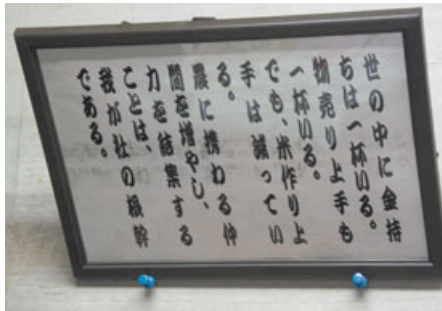 世の中に金持
ちは一杯いる。
物売り上手も
一杯いる。
でも、米作り上
手は減ってい
る。
農に携わる仲
間を増やし、
力を結集する
ことは、
我が社の根幹
である。